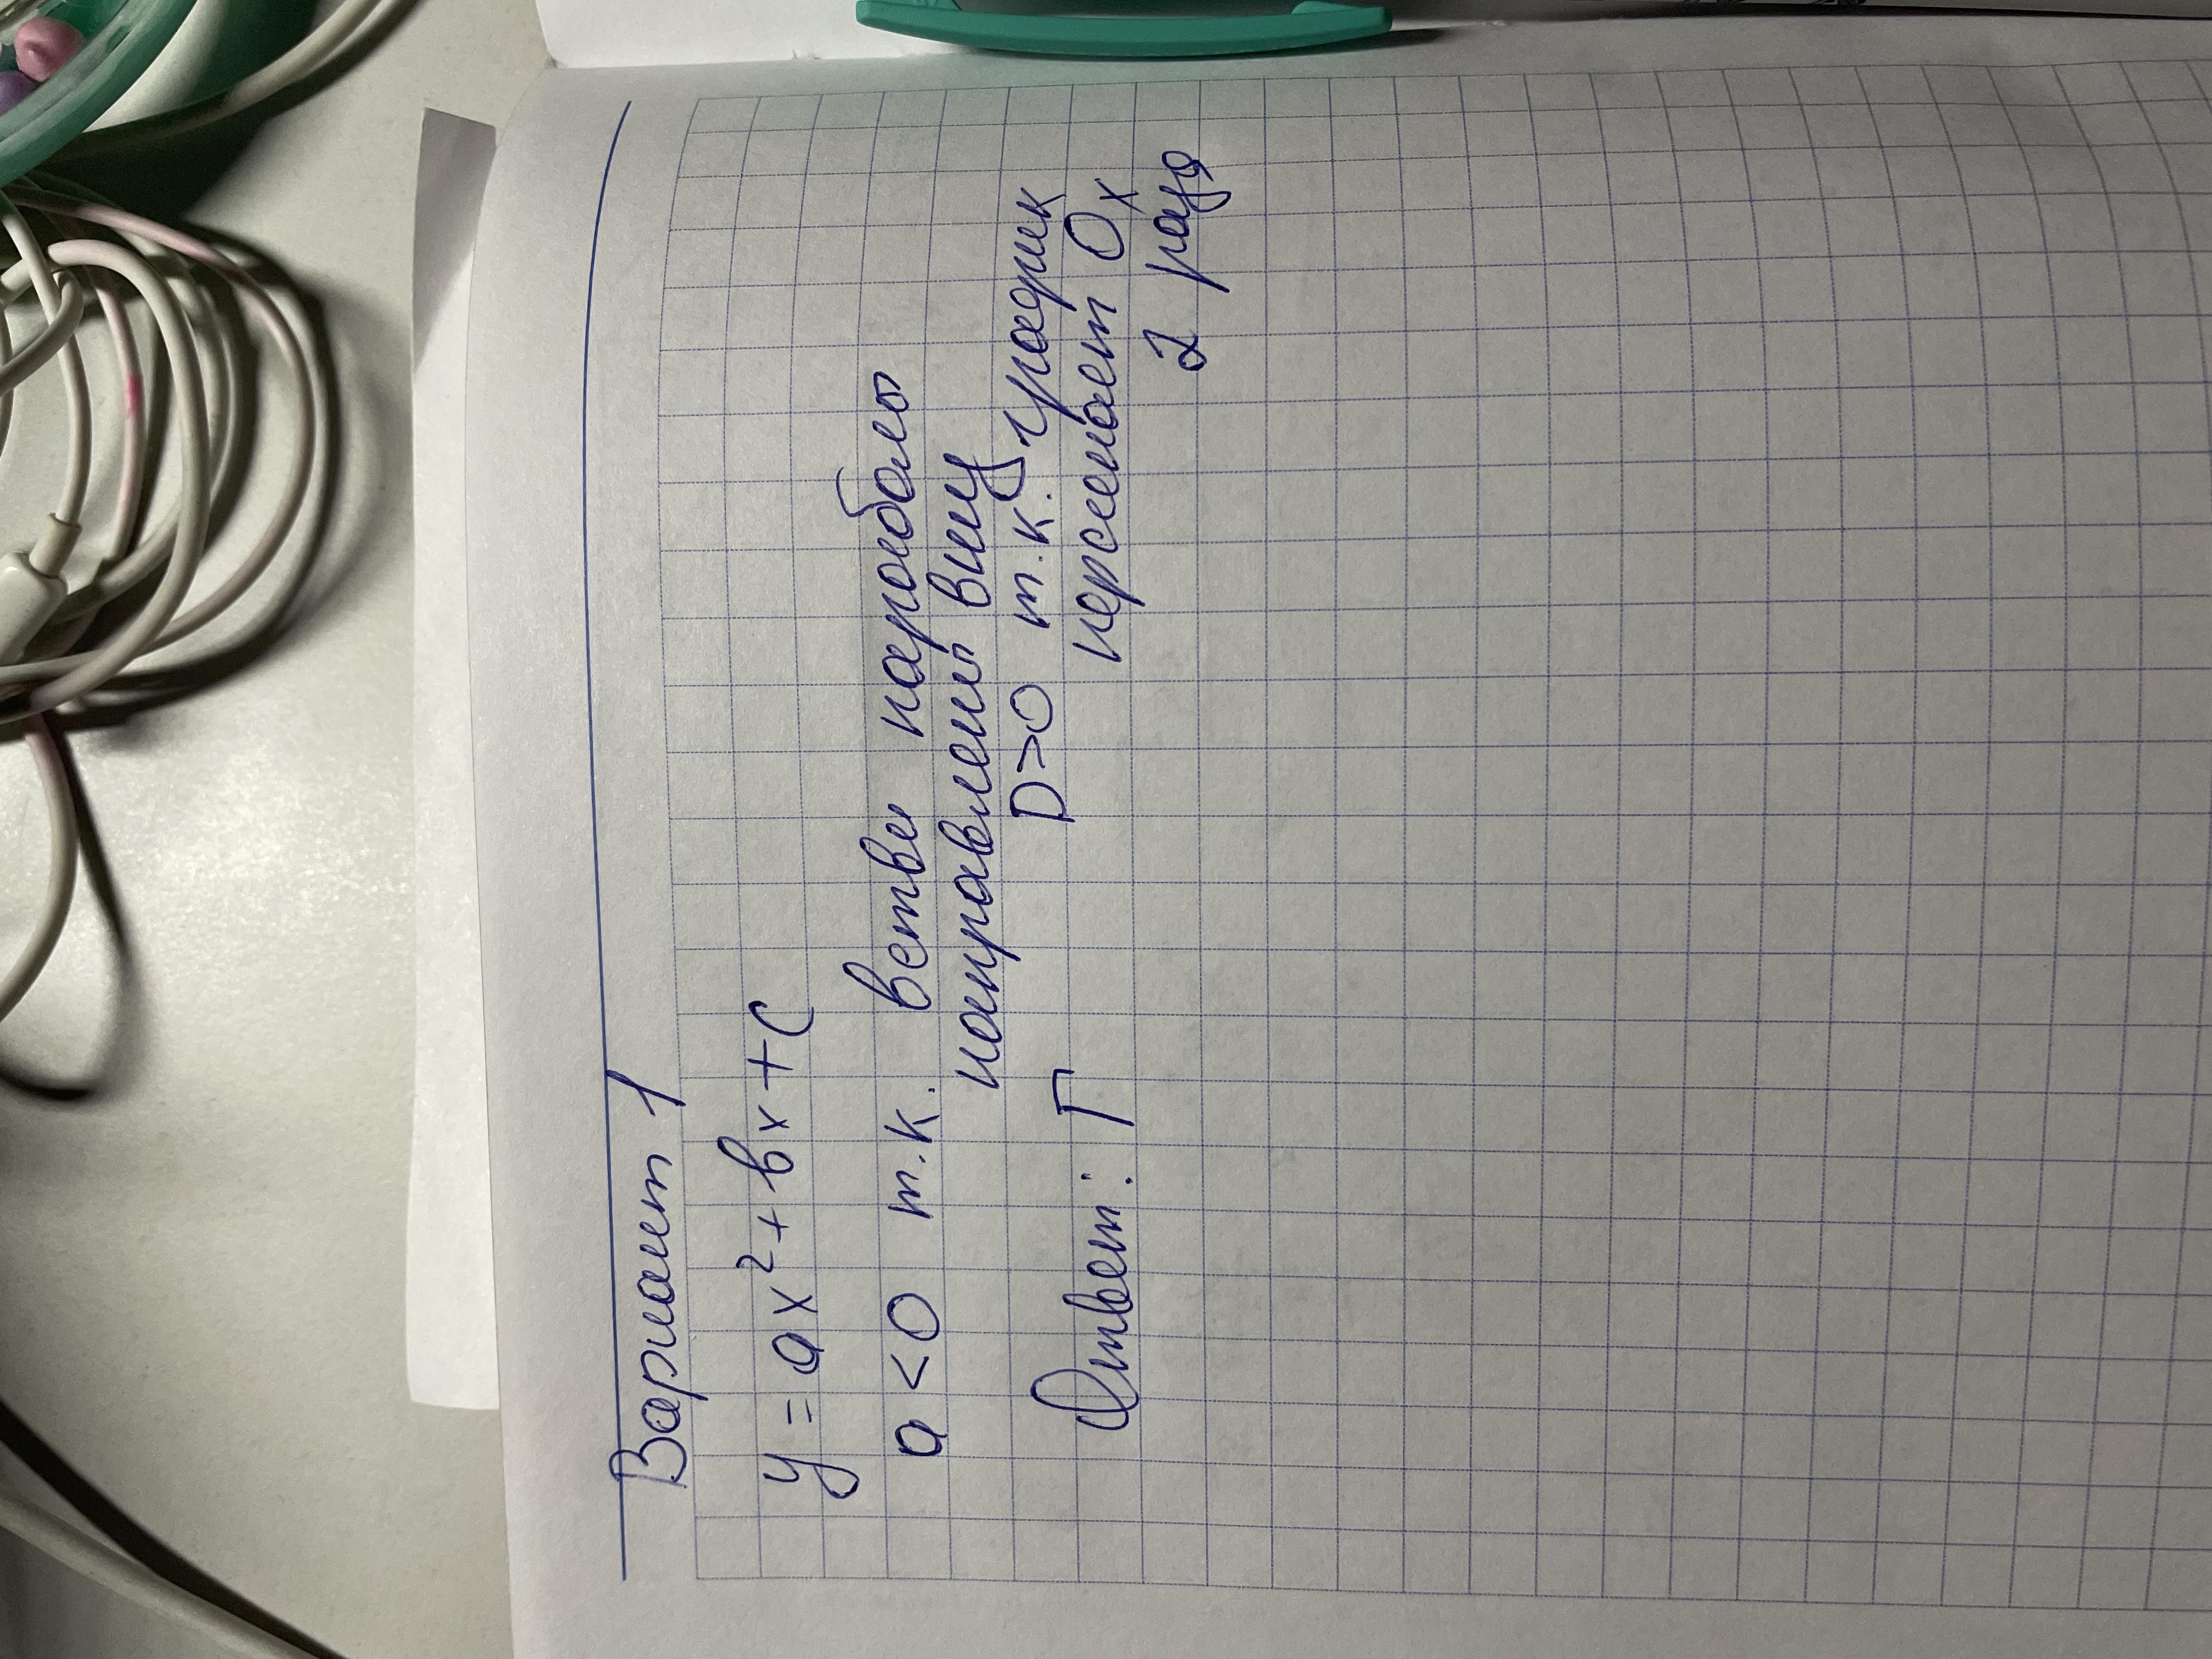 Вариант 1
y = ax² + bx + c
a < 0 т.к. ветви параболы
направлены вниз
D>0 т.к. график
персекает Ox
2 раза
Ответ: Г